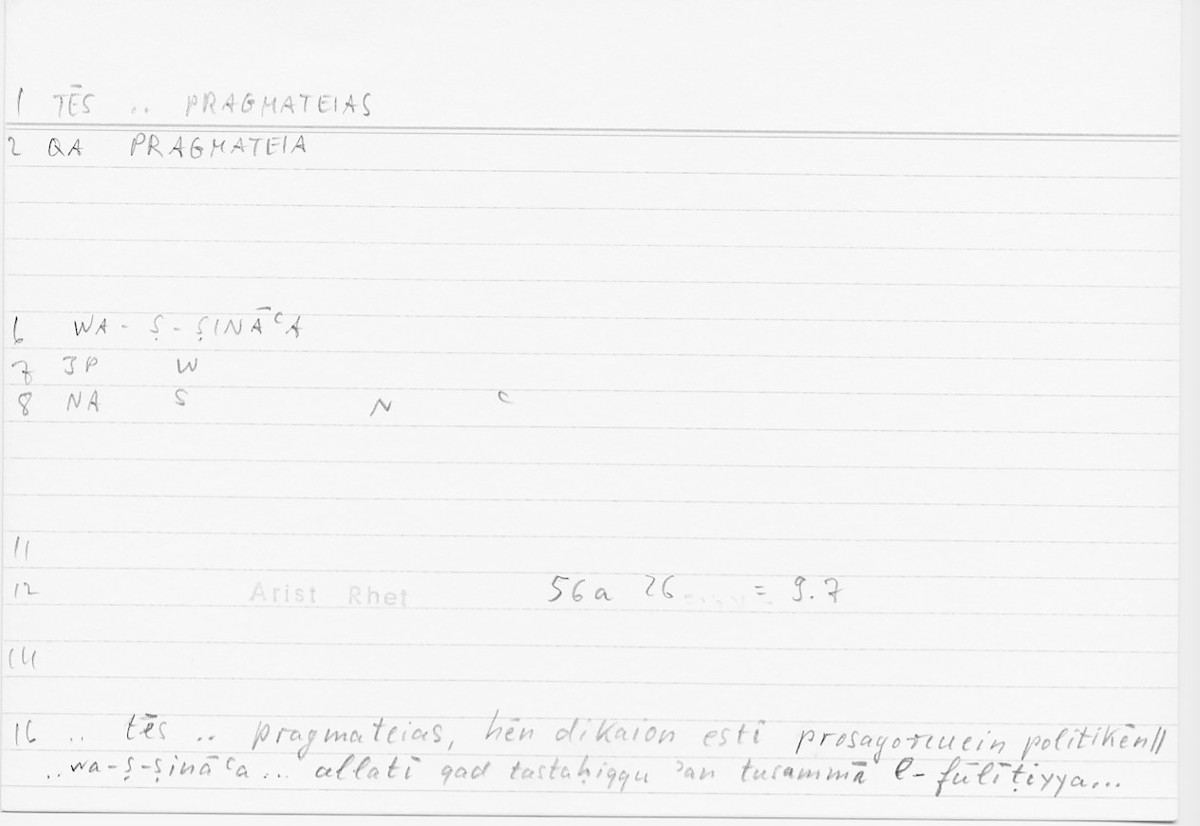 1 TĒS .. PRAGMATEIAS
2 QA PRAGMATEIA
6 WA-Ṣ-ṢINĀʿA
7 JP W
8 NA S N C
11
12 Arist Rhet 56a 26 = 9.7
14
16 .. tēs .. pragmateias, hēn dikaion esti prosagoreuein politikēn//
..wa-ṣ-ṣināʿa... allatī qad tastaḥiqqu ʾan tusammā l-fūlīṭiyya...